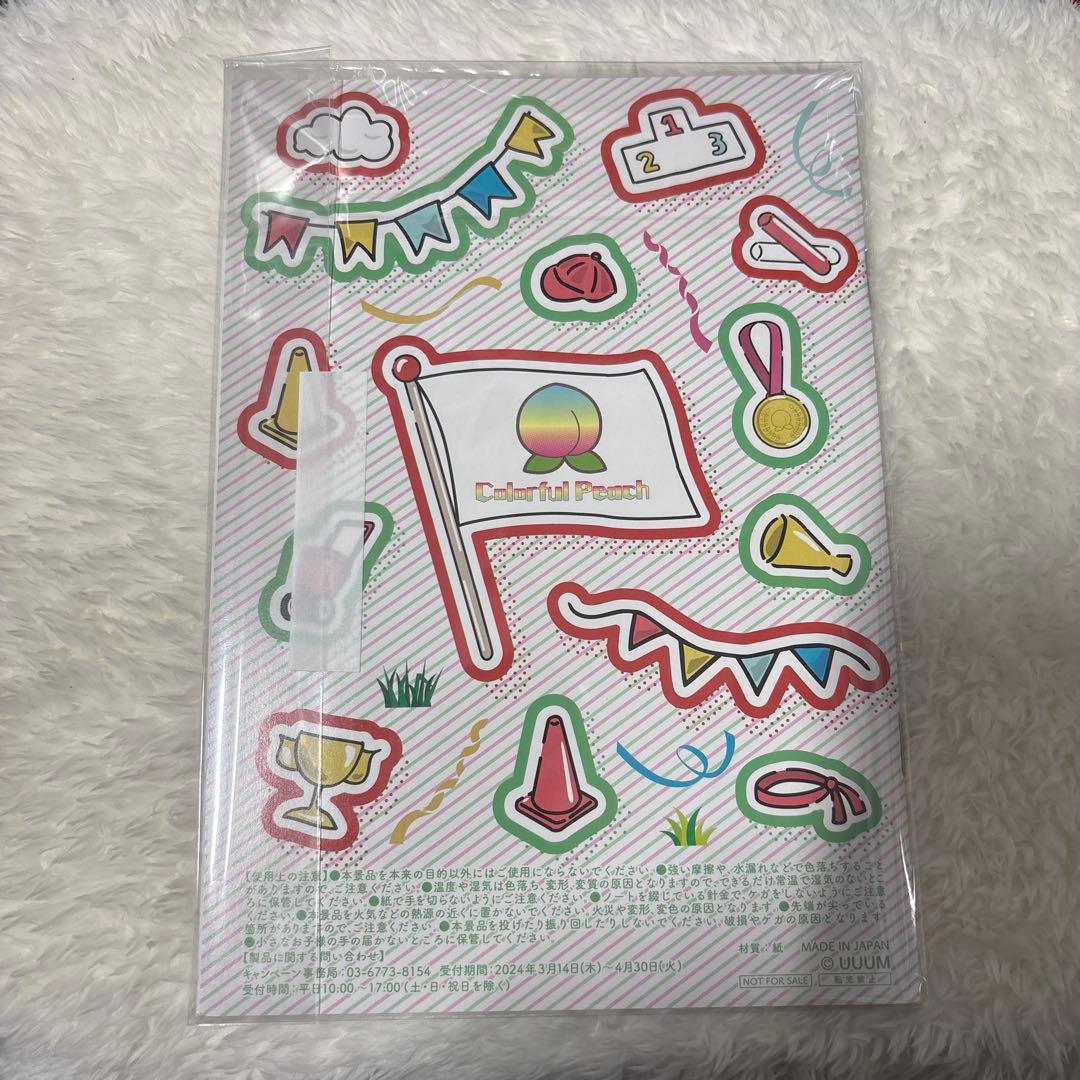 1
2
3
Colorful Peach
【使用上の注意】●本景品を本来の目的以外にはご使用にならないでください。●強い摩擦や、水漏れなどで色落ちすること
がありますので、ご注意ください。●温度や湿気は色落ち、変形、変質の原因となりますので、できるだけ常温で湿気のないとこ
ろに保管してください。●紙で手を切らないようにご注意ください。●ノートを綴じている針金で、ケガをしないようにご注意
ください。●本景品を火気などの熱源の近くに置かないでください。火災や変形、変色の原因となります。●先端が尖っている
箇所がありますので、ご注意ください。●本景品を投げたり振り回したりしないでください。破損やケガの原因となります。
●小さなお子様の手の届かないところに保管してください。
【製品に関する問い合わせ】
キャンペーン事務局：03-6773-8154 受付期間：2024年3月14日(木)～4月30日(火)
受付時間：平日10:00～17:00(土・日・祝日を除く)
材質：紙 MADE IN JAPAN
© UUUM
NOT FOR SALE 転売禁止